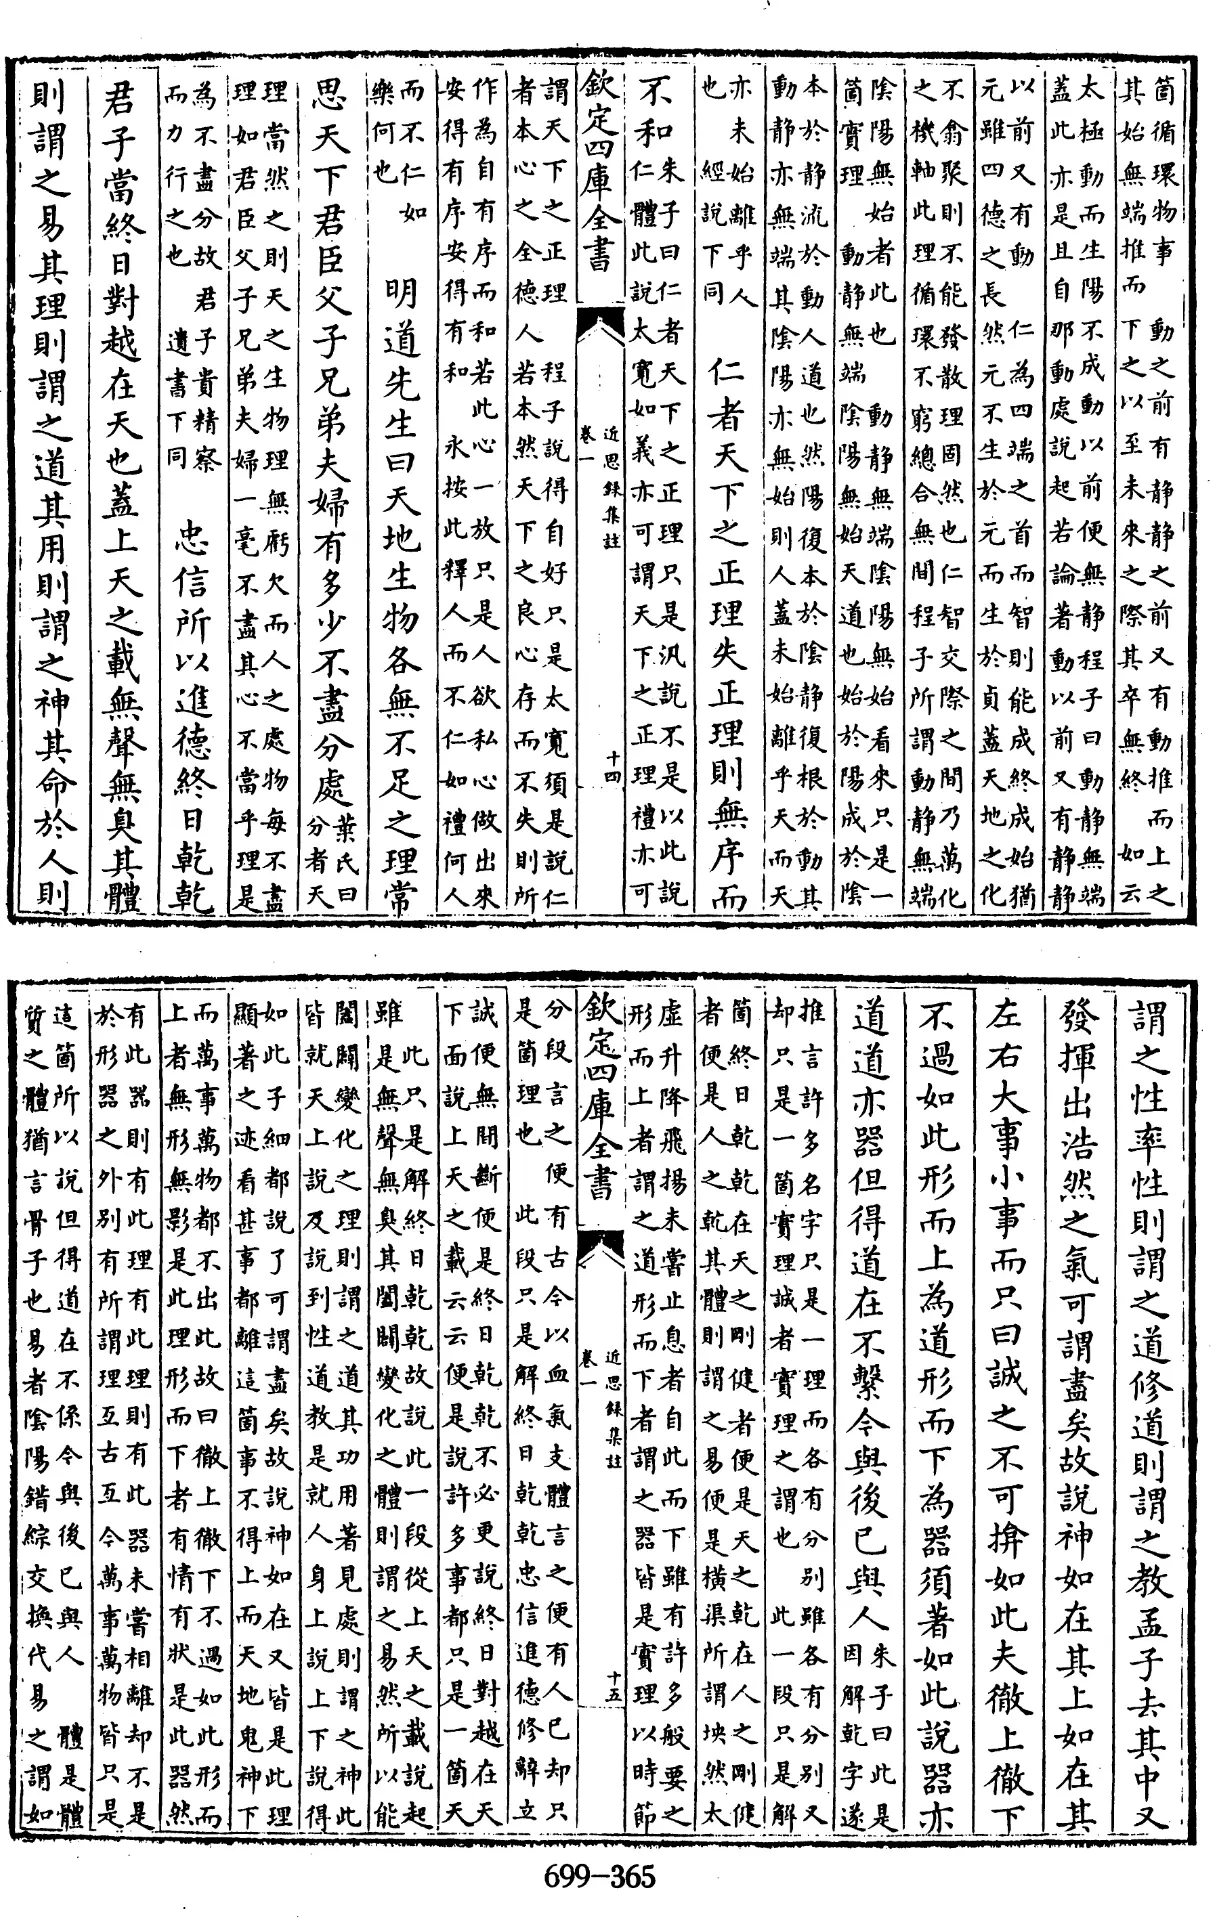 箇循環物事　動之前有靜靜之前又有動推而上之
其始無端推而下之以至未來之際其卒無終　如云
太極動而生陽不成動以前便無靜程子曰動靜無端
蓋此亦是且自那動處說起若論著動以前又有靜靜
以前又有動　仁為四端之首而智則能成終成始猶
元雖四德之長然元不生於元而生於貞蓋天地之化
不翕聚則不能發散理固然也仁智交際之間乃萬化
之機軸此理循環不窮總合無間程子所謂動靜無端
陰陽無始者此也　動靜無端陰陽無始看來只是一
箇實理　動靜無端陰陽無始天道也始於陽成於陰
本於靜流於動人道也然陽復本於陰靜復根於動其
動靜亦無端其陰陽亦無始則人蓋未始離乎天而天
亦未始離乎人
也　經說下同
仁者天下之正理失正理則無序而
不和
朱子曰仁者天下之正理只是汎說不是以此說
仁體此說太寬如義亦可謂天下之正理禮亦可
欽定四庫全書
近思錄集註
卷一
十四
謂天下之正理　程子說得自好只是太寬須是說仁
者本心之全德人若本然天下之良心存而不失則所
作為自有序而和若此心一放只是人欲私心做出來
安得有序安得有和　永按此釋人而不仁如禮何人
而不仁如
樂何也
明道先生曰天地生物各無不足之理常
思天下君臣父子兄弟夫婦有多少不盡分處
葉氏曰
分者天
理當然之則天之生物理無虧欠而人之處物每不盡
理如君臣父子兄弟夫婦一毫不盡其心不當乎理是
為不盡分故君子貴精察
而力行之也　遺書下同
忠信所以進德終日乾乾
君子當終日對越在天也蓋上天之載無聲無臭其體
則謂之易其理則謂之道其用則謂之神其命於人則
謂之性率性則謂之道修道則謂之教孟子去其中又
發揮出浩然之氣可謂盡矣故說神如在其上如在其
左右大事小事而只曰誠之不可揜如此夫徹上徹下
不過如此形而上為道形而下為器須著如此說器亦
道道亦器但得道在不繫今與後已與人
朱子曰此是
因解乾字遂
推言許多名字只是一理而各有分別雖各有分別又
却只是一箇實理誠者實理之謂也　此一段只是解
箇終日乾乾在天之剛健者便是天之乾在人之剛健
者便是人之乾其體則謂之易便是橫渠所謂坱然太
虛升降飛揚未嘗止息者自此而下雖有許多般要之
形而上者謂之道形而下者謂之器皆是實理以時節
欽定四庫全書
近思錄集註
卷一
十五
分段言之便有古今以血氣支體言之便有人已却只
是箇理也　此段只是解終日乾乾忠信進德修辭立
誠便無間斷便是終日乾乾不必更說終日對越在天
下面說上天之載云云便是說許多事都只是一箇天
此只是解終日乾乾故說此一段從上天之載說起
雖是無聲無臭其闔闢變化之體則謂之易然所以能
闔闢變化之理則謂之道其功用著見處則謂之神此
皆就天上說及說到性道教是就人身上說上下說得
如此子細都說了可謂盡矣故說神如在又皆是此理
顯著之迹看甚事都離這箇事不得上而天地鬼神下
而萬事萬物都不出此故曰徹上徹下不過如此形而
上者無形無影是此理形而下者有情有狀是此器然
有此器則有此理有此理則有此器未嘗相離却不是
於形器之外別有所謂理亙古亙今萬事萬物皆只是
這箇所以說但得道在不係今與後已與人　體是體
質之體猶言骨子也易者陰陽錯綜交換代易之謂如
699-365